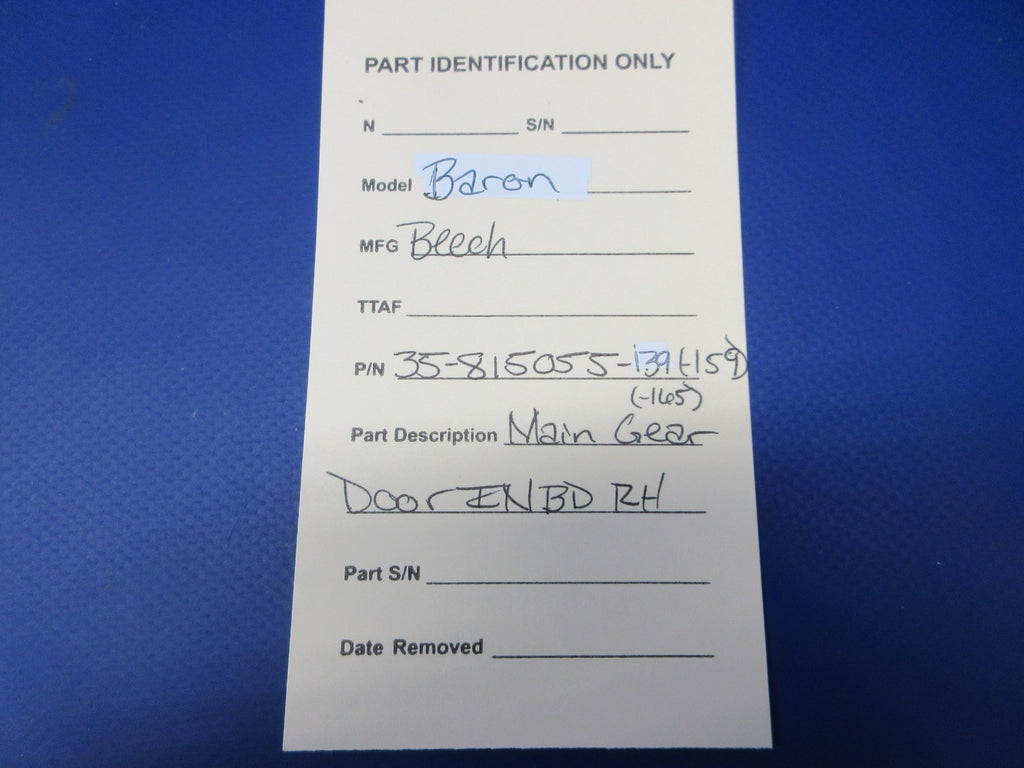 PART IDENTIFICATION ONLY
N S/N
Model Baron
MFG Beech
TTAF
P/N 35-815055-139 (-159)
(-165)
Part Description Main Gear
Door INBD RH
Part S/N
Date Removed